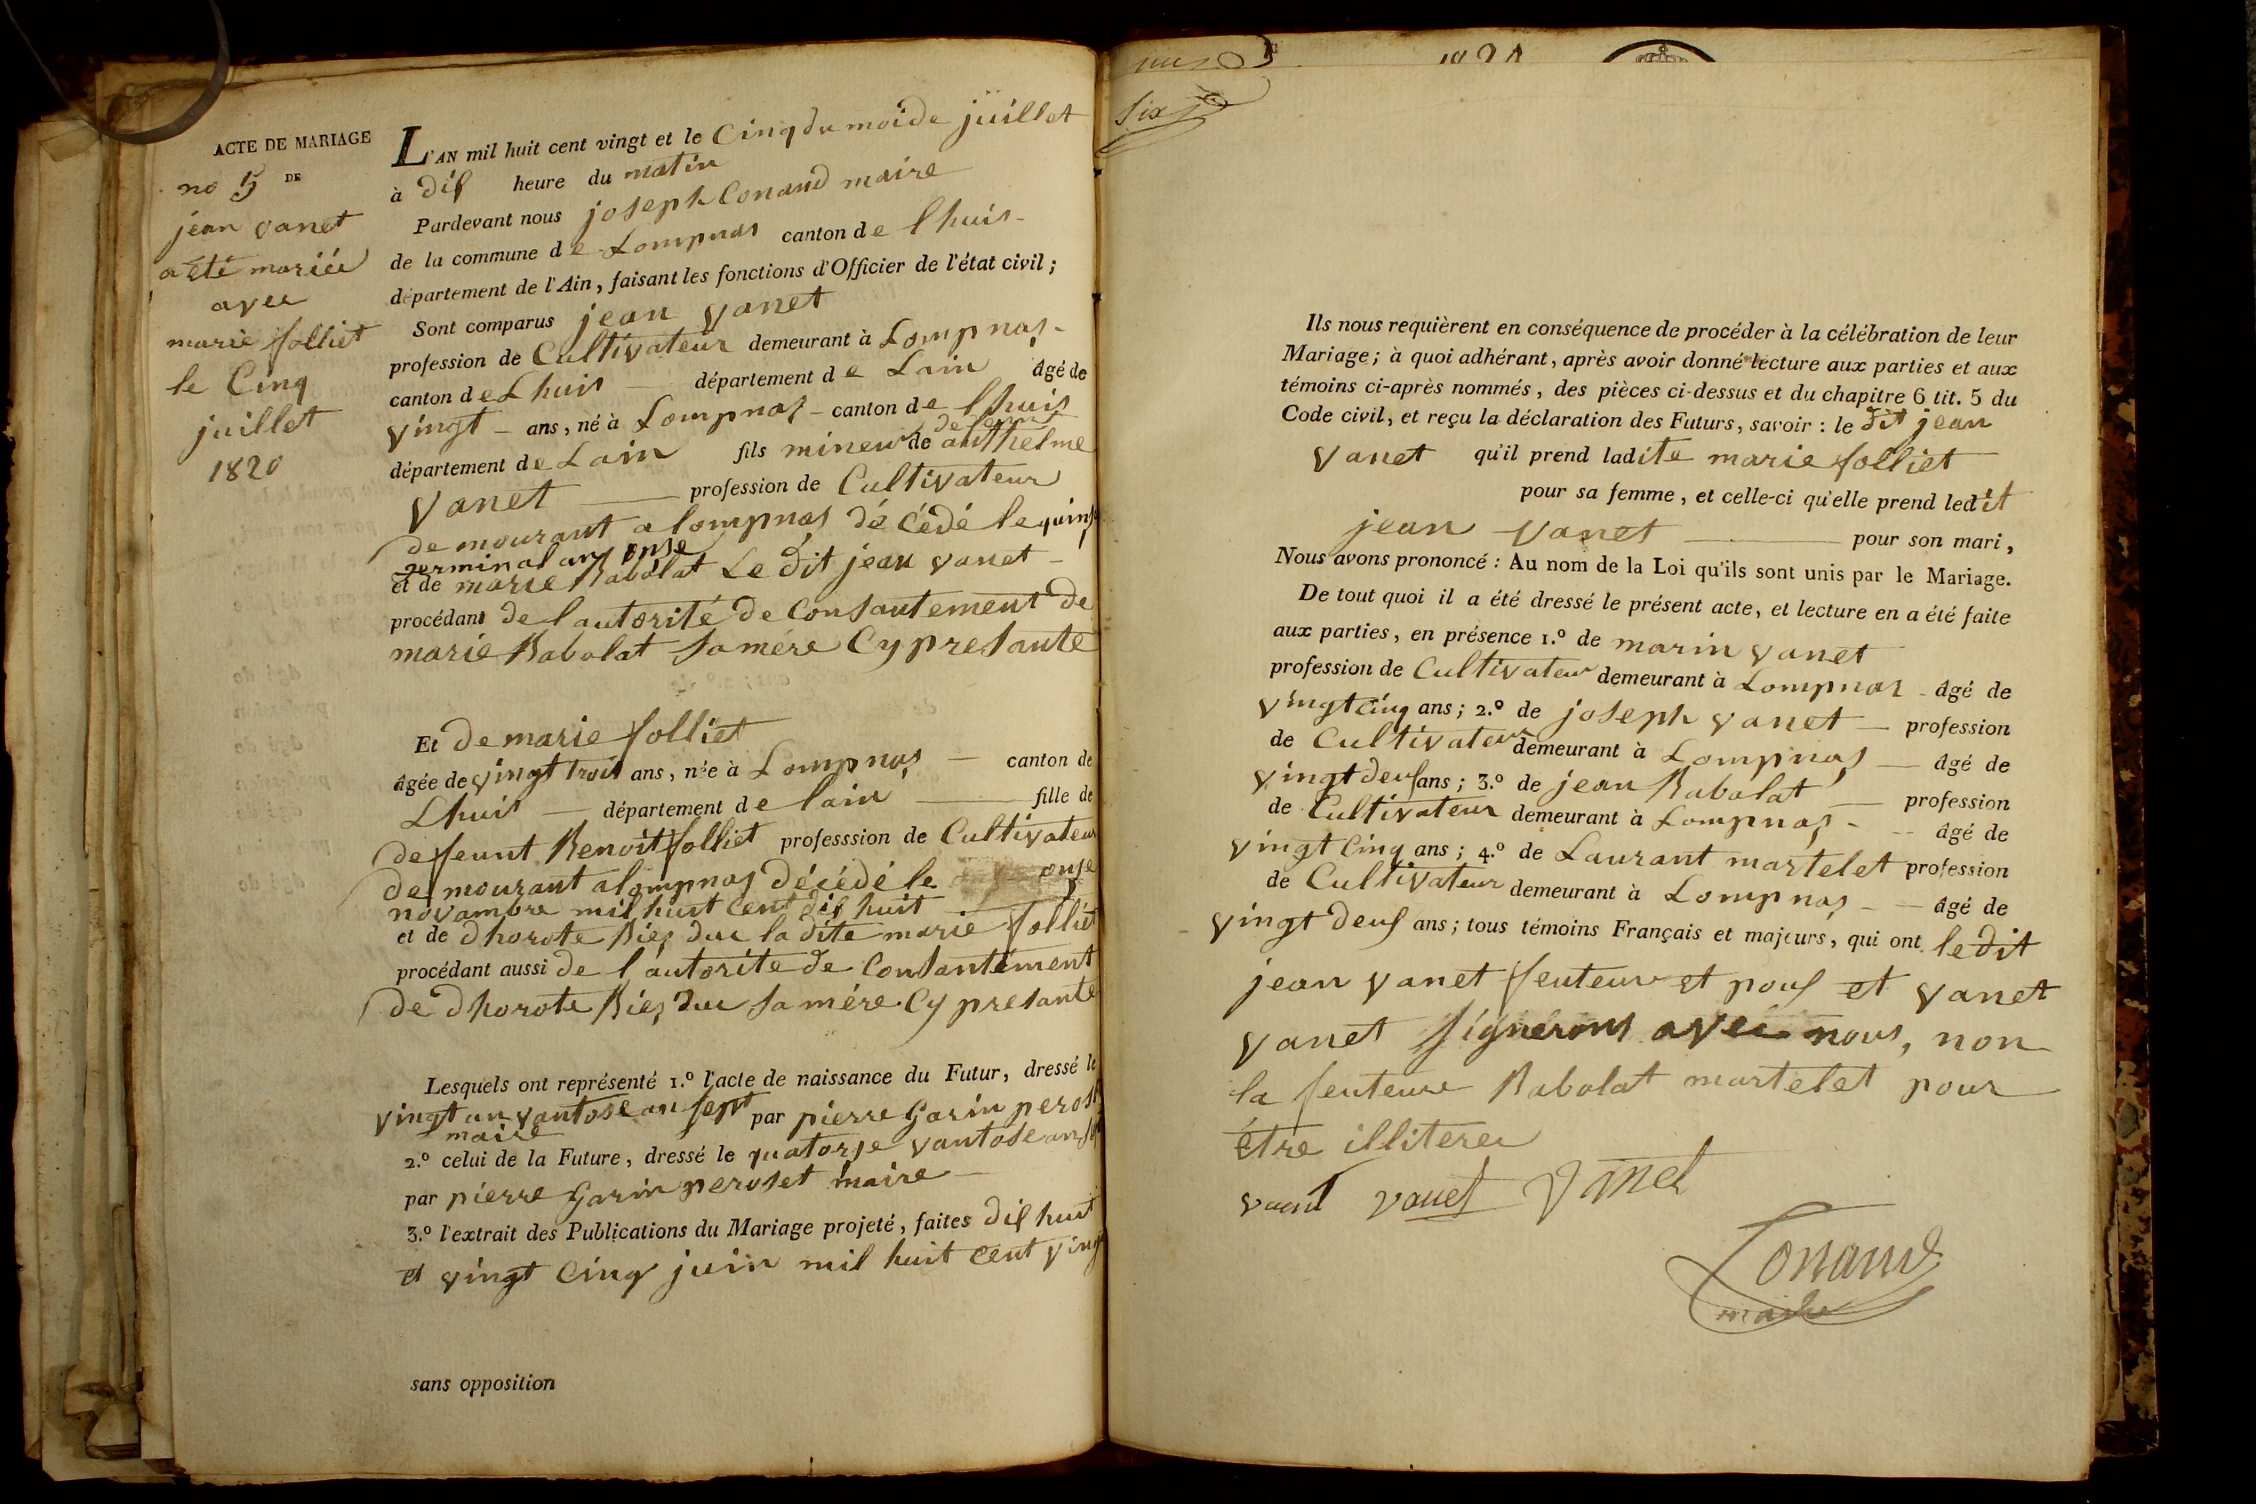 ACTE DE MARIAGE
no 5 DE
jean vanet
a été mariée
avec
marie folliet
le Cinq
juillet
1820
L'AN mil huit cent vingt et le Cinq du moi de juillet
à dis heure du matin
Pardevant nous joseph Conand maire
de la commune de Lompnas canton de lhuis
département de l'Ain, faisant les fonctions d'Officier de l'état civil;
Sont comparus jean vanet
profession de Cultivateur demeurant à Lompnas
canton de Lhuis département de Lain âgé de
vingt ans, né à Lompnas canton de lhuis
département de Lain fils mineur de defeunt anthelme
vanet profession de Cultivateur
demourant a lompnas décédé le quinse
germinal an onse
et de marie Babolat Le dit jean vanet
procédant de lautorité de Consantement de
marie Babolat sa mére Cy presante
Et de marie folliet
âgée de vingt trois ans, née à Lompnas canton de
Lhuis département de lain fille de
defeunt Benoit folliet professsion de Cultivateur
demourant a lompnas décédé le onse
novambre mil huit cent dis huit
et de dhorote Biez duc la dite marie folliet
procédant aussi de l'autorité de Consantement
de dhorote Biez duc sa mére Cy presante
Lesquels ont représenté 1.º l'acte de naissance du Futur, dressé le
vingt un vantose an sept par pierre Garin peroset
maire
2.º celui de la Future, dressé le quatorse vantose an
par pierre Garin peroset maire
3.º l'extrait des Publications du Mariage projeté, faites dis huit
et vingt Cinq juin mil huit cent vingt
sans opposition
six
Ils nous requièrent en conséquence de procéder à la célébration de leur
Mariage; à quoi adhérant, après avoir donné lecture aux parties et aux
témoins ci-après nommés, des pièces ci-dessus et du chapitre 6 tit. 5 du
Code civil, et reçu la déclaration des Futurs, savoir : le dit jean
vanet qu'il prend ladite marie folliet
pour sa femme, et celle-ci qu'elle prend ledit
jean vanet pour son mari,
Nous avons prononcé : Au nom de la Loi qu'ils sont unis par le Mariage.
De tout quoi il a été dressé le présent acte, et lecture en a été faite
aux parties, en présence 1.º de marin vanet
profession de Cultivateur demeurant à Lompnas âgé de
vingt cinq ans; 2.º de joseph vanet profession
de Cultivateur demeurant à Lompnas âgé de
vingt deus ans; 3.º de jean Babolat profession
de Cultivateur demeurant à Lompnas âgé de
vingt Cinq ans; 4.º de Laurant martelet profession
de Cultivateur demeurant à Lompnas âgé de
vingt deus ans; tous témoins Français et majeurs, qui ont le dit
jean vanet feuteur et pous et vanet
vanet signerons avec nous, non
la feuteure Babolat martelet pour
être illiterer
vanet vanet vanet
Conand
maire